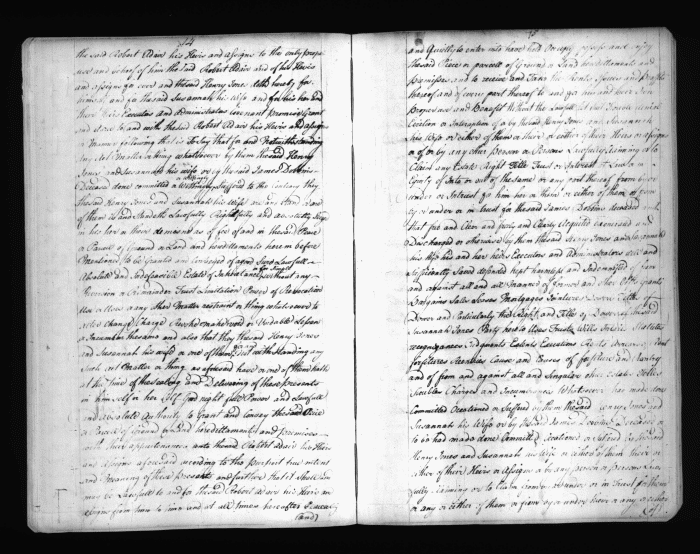 74
the said Robert Adair his Heirs and assigns to the only proper
use and behoof of him the said Robert Adair and of his Heirs
and assigns for ever and the said Henry Jones doth hereby for
himself and for the said Susannah his Wife and for his and
their Heirs Executors and Administrators Covenant promise Grant
and agree to and with the said Robert Adair his Heirs and assigns
in Manner following that is to say that for and Notwithstanding
any Act Matter or thing whatsoever by them the said Henry
Jones and Susannah his Wife or by the said James Bobbins
Deceased done committed or wittingly suffered to the Contrary they
the said Henry Jones and Susannah his Wife are or any
of them is and Standeth Lawfully Rightfully and absolutely Seized
in her or their demesne as of fee of and in the said Piece
or Parcel of Ground or Land and hereditaments herein before
Mentioned to be granted and conveyed of a good Sure Lawfull
Absolute and Indefeasible Estate of Inheritance in fee simple without any
Reversion or Remainder Trust Limitation Power of Revocation
Use or Uses or any other Matter restraint or thing whatsoever to
alter change Charge Revoke make void or Lessen
or Incumber the same and also that they the said Henry Jones
and Susannah his wife or one of them notwithstanding any
such act Matter or thing as aforesaid have or one of them hath
at the Time of the Sealing and Delivering of these presents
in him self or her Self good right full Power and lawfull
and absolute authority to Grant and Convey the said Piece
or Parcel of Ground or Land hereditaments and premises
with their appurtenances unto the said Robert Adair his Heirs
and assigns aforesaid according to the purport true intent
and Meaning of these presents and further that it shall and
may be Lawfull to and for the said Robert Adair his Heirs and
assigns from time to time and at all times hereafter Peaceably
(and)
75
and Quietly to enter into have hold Occupy possess and enjoy
the said Piece or parcell of Ground or Land hereditaments and
premises and to receive and Take the Rents Issues and Profits
thereof and of every part thereof to and for his and their own
Proper use and Benefit Without the Lawfull Let Suit Trouble denial
Eviction or Interruption of or by the said Henry Jones and Susannah
his Wife or either of them or their or either of their Heirs or assigns
or of or by any other Person or Persons Lawfully claiming or to
Claim any Estate Right Title Trust or Interest at Law or in
Equity of into or out of the same or any part thereof from by or
under or in trust for him her or them or either of them or from
by or under or in trust for the said James Bobbins deceased and
that free and Clear and freely and Clearly Acquitted exonerated and
Discharged or otherwise by them the said Henry Jones and Susannah
his Wife his and her Heirs Executors and Administrators well and
sufficiently Saved defended kept harmless and Indemnified of from
and against all and all manner of former and other Gifts grants
Bargains Sales Leases Mortgages Jointures Dower Title of
Dower and Particularly the Right and Title of Dower of the said
Susannah Jones Party hereto Uses Trusts Wills Intails Statutes
recognizances Judgments Extents Executions
forfeitures Securities Cause and Causes of forfeiture and
and of from and against all and Singular other Estates Titles
Troubles Charges and Incumbrances Whatsoever had made done
Committed Occasioned or Suffered by them the said Henry Jones and
Susannah his Wife or by the said James Bobbins Deceased or
to be had made done Committed Occasioned or Suffered by the said
Henry Jones and Susannah his Wife or either of them their or
either of their Heirs or assigns or by any person or Persons Law
fully claiming or to Claim from by or under or in Trust for them
or any or either of them or from by or under their or any or either
(of)